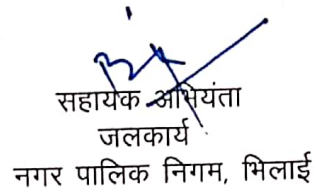 सहायक अभियंता
जलकार्य
नगर पालिक निगम, भिलाई